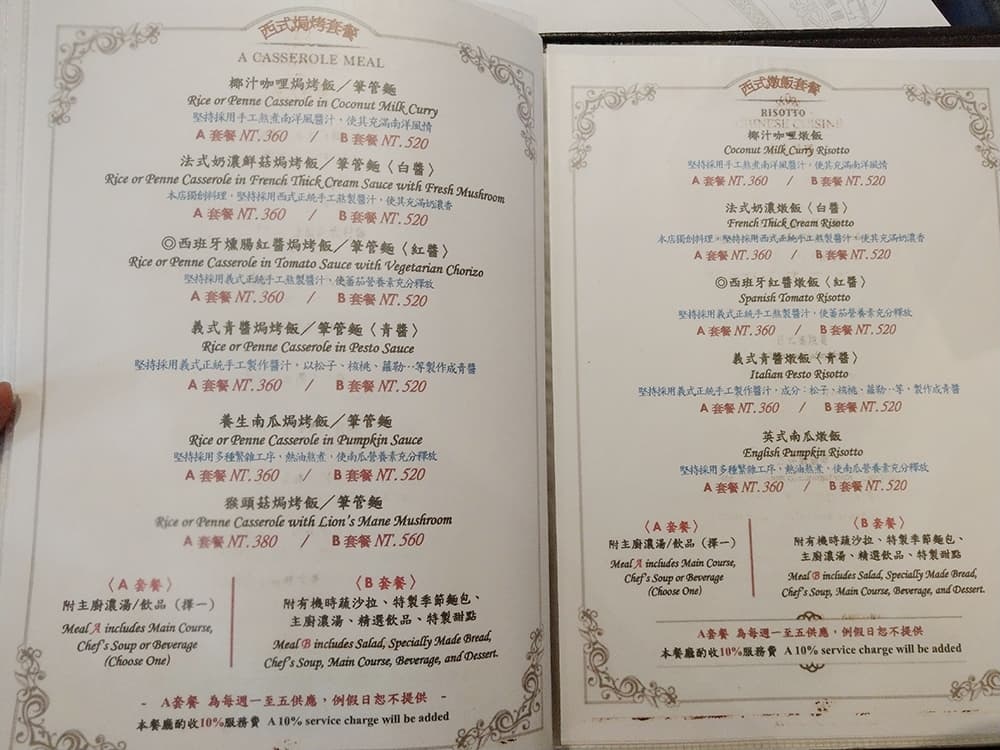 西式焗烤套餐
A CASSEROLE MEAL
椰汁咖哩焗烤飯／筆管麵
Rice or Penne Casserole in Coconut Milk Curry
堅持採用手工熬煮南洋風醬汁，使其充滿南洋風情
A 套餐 NT.360 / B 套餐 NT.520
法式奶濃鮮菇焗烤飯／筆管麵〈白醬〉
Rice or Penne Casserole in French Thick Cream Sauce with Fresh Mushroom
本店獨創料理，堅持採用西式正統手工熬製醬汁，使其充滿奶濃香
A 套餐 NT.360 / B 套餐 NT.520
◎西班牙燻腸紅醬焗烤飯／筆管麵〈紅醬〉
Rice or Penne Casserole in Tomato Sauce with Vegetarian Chorizo
堅持採用義式正統手工熬製醬汁，使蕃茄營養素充分釋放
A 套餐 NT.360 / B 套餐 NT.520
義式青醬焗烤飯／筆管麵〈青醬〉
Rice or Penne Casserole in Pesto Sauce
堅持採用義式正統手工製作醬汁，以松子、核桃、蘿勒…等製作成青醬
A 套餐 NT.360 / B 套餐 NT.520
養生南瓜焗烤飯／筆管麵
Rice or Penne Casserole in Pumpkin Sauce
堅持採用多種繁雜工序，熱油熬煮，使南瓜營養素充分釋放
A 套餐 NT.360 / B 套餐 NT.520
猴頭菇焗烤飯／筆管麵
Rice or Penne Casserole with Lion's Mane Mushroom
A 套餐 NT.380 / B 套餐 NT.560
〈A 套餐〉
附主廚濃湯/飲品（擇一）
Meal A includes Main Course,
Chef's Soup or Beverage
(Choose One)
〈B 套餐〉
附有機時蔬沙拉、特製季節麵包、
主廚濃湯、精選飲品、特製甜點
Meal B includes Salad, Specially Made Bread,
Chef's Soup, Main Course, Beverage, and Dessert.
- A套餐 為每週一至五供應，例假日恕不提供 -
本餐廳酌收10%服務費 A 10% service charge will be added
西式燉飯套餐
RISOTTO
椰汁咖哩燉飯
Coconut Milk Curry Risotto
堅持採用手工熬煮南洋風醬汁，使其充滿南洋風情
A 套餐 NT.360 / B 套餐 NT.520
法式奶濃燉飯〈白醬〉
French Thick Cream Risotto
本店獨創料理，堅持採用西式正統手工熬製醬汁，使其充滿奶濃香
A 套餐 NT.360 / B 套餐 NT.520
◎西班牙紅醬燉飯〈紅醬〉
Spanish Tomato Risotto
堅持採用義式正統手工熬製醬汁，使蕃茄營養素充分釋放
A 套餐 NT.360 / B 套餐 NT.520
義式青醬燉飯〈青醬〉
Italian Pesto Risotto
堅持採用義式正統手工製作醬汁，成分：松子、核桃、蘿勒…等，製作成青醬
A 套餐 NT.360 / B 套餐 NT.520
英式南瓜燉飯
English Pumpkin Risotto
堅持採用多種繁雜工序，熱油熬煮，使南瓜營養素充分釋放
A 套餐 NT.360 / B 套餐 NT.520
〈A 套餐〉
附主廚濃湯/飲品（擇一）
Meal A includes Main Course,
Chef's Soup or Beverage
(Choose One)
〈B 套餐〉
附有機時蔬沙拉、特製季節麵包、
主廚濃湯、精選飲品、特製甜點
Meal B includes Salad, Specially Made Bread,
Chef's Soup, Main Course, Beverage, and Dessert.
A套餐 為每週一至五供應，例假日恕不提供
本餐廳酌收10%服務費 A 10% service charge will be added